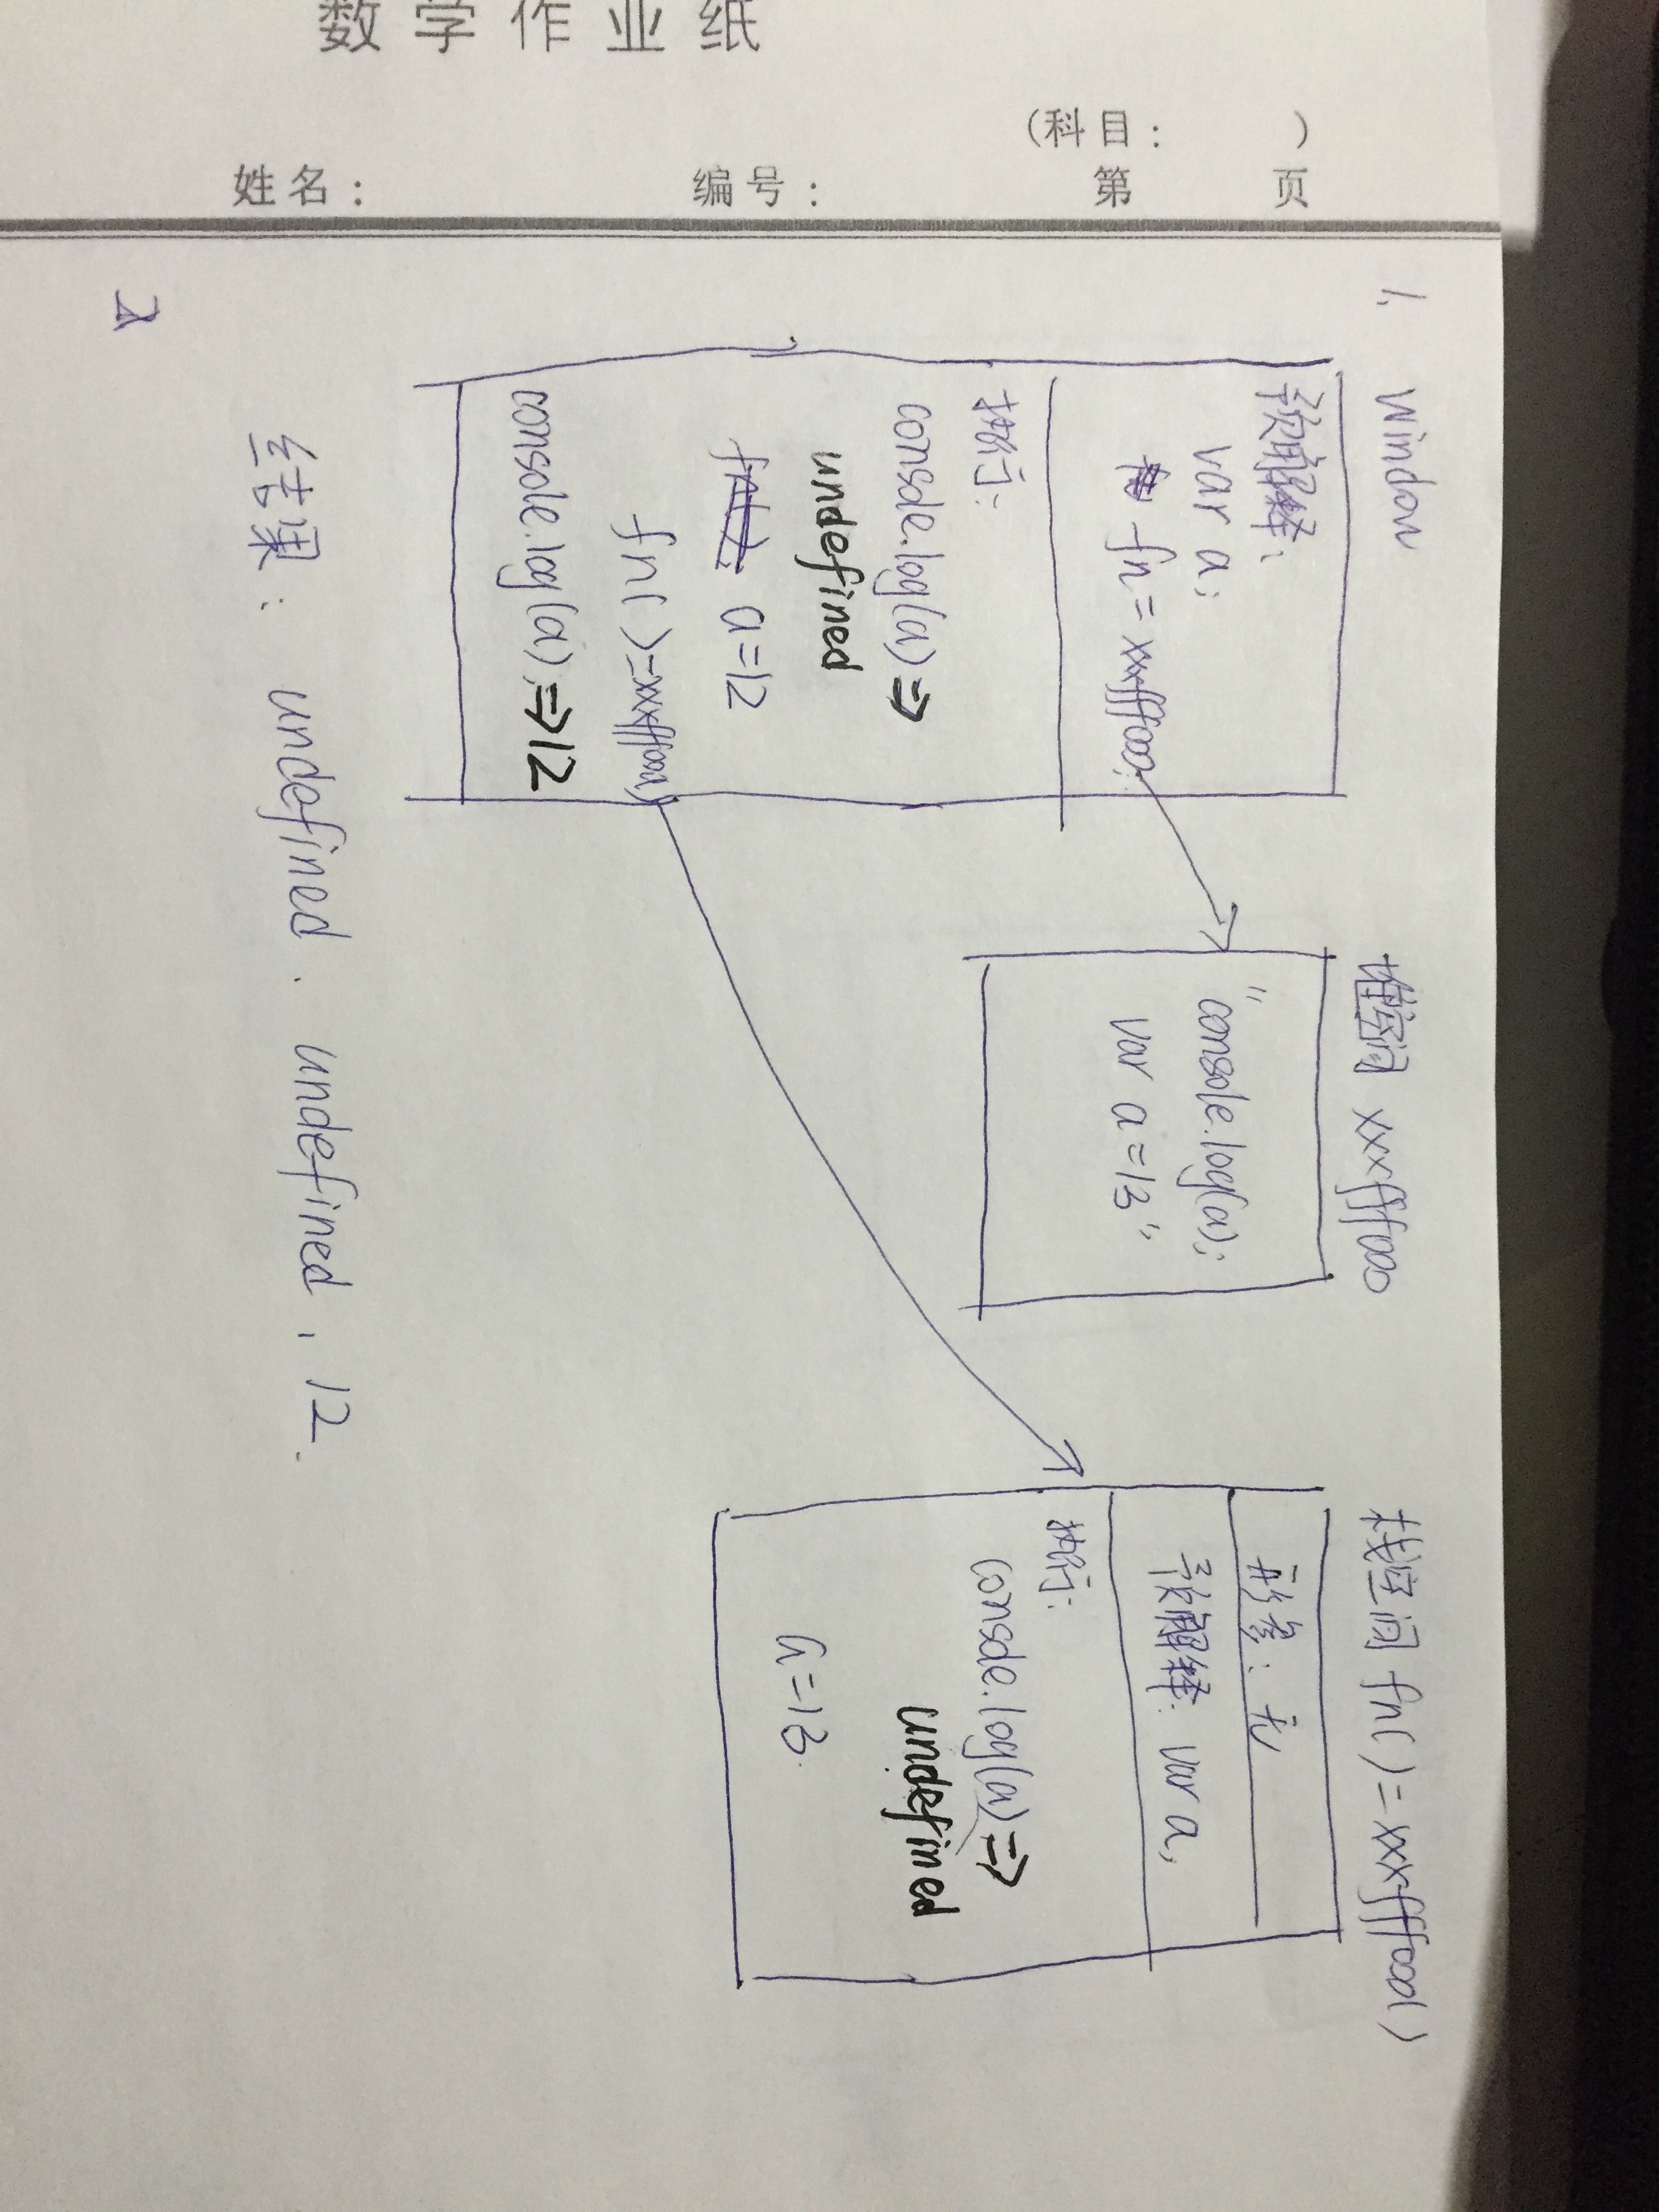 数学作业纸
(科目: )
姓名: 编号: 第 页
1. Window
预解释:
var a;
fn = xxxfff000;
执行:
console.log(a) =>
undefined
a=12
fn()=xxxfff000()
console.log(a) => 12
堆空间 xxxfff000
"console.log(a);
var a=13";
栈空间 fn()=xxxfff000()
形参: 无
预解释: var a;
执行:
console.log(a) =>
undefined
a=13.
结果: undefined、undefined、12.
2